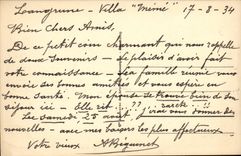 Langrune - Villa "Mémé" 17-8-34
Bien Chers Amis,
De ce petit coin charmant qui nous rappelle
de doux souvenirs - le plaisir d'avoir fait
votre connaissance - la famille vous
envoie ses bonnes amitiés et vous espère en
bonne Santé. Mon se trouve bien de son
séjour ici - Elle rit ??
Le Samedi 25 août j'irai vous donner des
nouvelles - avec mes baisers les plus affectueux
Votre vieux